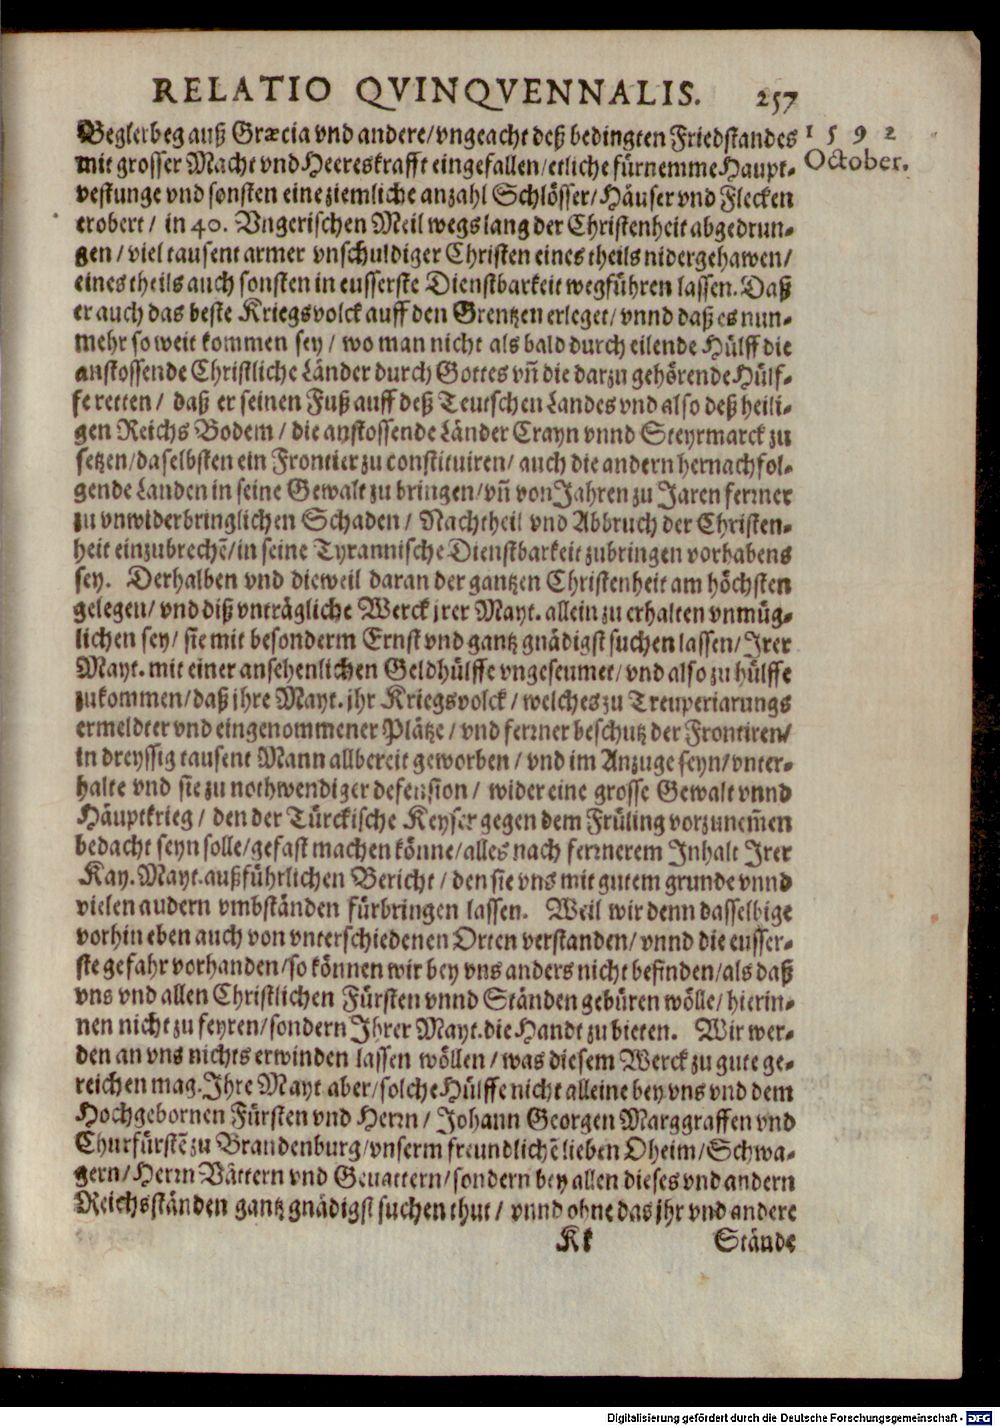 RELATIO QVINQVENNALIS. 257
1592
October.
Beglerbeg auß Græcia vnd andere/vngeacht deß bedingten Friedstandes
mit grosser Macht vnd Heereskrafft eingefallen/etliche fürnemme Haupt-
vestunge vnd sonsten eine ziemliche anzahl Schlösser/Häuser vnd Flecken
erobert/ in 40. Vngerischen Meil wegs lang der Christenheit abgedrun-
gen/viel tausent armer vnschuldiger Christen eines theils nidergehawen/
eines theils auch sonsten in eusserste Dienstbarkeit wegführen lassen. Daß
er auch das beste Kriegsvolck auff den Grentzen erleget/ vnnd daß es nun-
mehr so weit kommen sey/ wo man nicht als bald durch eilende Hülff die
anstossende Christliche Länder durch Gottes vñ die darzu gehörende Hülf-
fe retten/ daß er seinen Fuß auff deß Teutschen Landes vnd also deß heili-
gen Reichs Bodem/ die anstossende Länder Crayn vnnd Steyrmarck zu
setzen/daselbsten ein Frontier zu constituiren/ auch die andern hernachfol-
gende Landen in seine Gewalt zu bringen/vñ von Jahren zu Jaren ferrner
zu vnwiderbringlichen Schaden/ Nachtheil vnd Abbruch der Christen-
heit einzubrechē/in seine Tyrannische Dienstbarkeit zubringen vorhabens
sey. Derhalben vnd dieweil daran der gantzen Christenheit am höchsten
gelegen/ vnd diß vnträgliche Werck jrer Mayt. allein zu erhalten vnmüg-
lichen sey/ sie mit besonderm Ernst vnd gantz gnädigst suchen lassen/ Jrer
Mayt. mit einer ansehenlichen Geldhülffe vngeseumet/ vnd also zu hülffe
zukommen/daß jhre Mayt. jhr Kriegsvolck/ welches zu Treuperiarungs
ermeldter vnd eingenommener Plätze/ vnd ferrner beschutz der Frontiren/
in dreyssig tausent Mann allbereit geworben/ vnd im Anzuge seyn/vnter-
halte vnd sie zu nothwendiger defension/ wider eine grosse Gewalt vnnd
Häuptkrieg/ den der Türckische Keyser gegen dem Früling vorzunem̃en
bedacht seyn solle/gefast machen könne/alles nach ferrnerem Inhalt Jrer
Kay. Mayt. außführlichen Bericht/ den sie vns mit gutem grunde vnnd
vielen andern vmbständen fürbringen lassen. Weil wir denn dasselbige
vorhin eben auch von vnterschiedenen Orten verstanden/ vnnd die eusser-
ste gefahr vorhanden/so können wir bey vns anders nicht befinden/als daß
vns vnd allen Christlichen Fürsten vnnd Ständen gebüren wölle/ hierin-
nen nicht zu feyren/sondern Jhrer Mayt. die Handt zu bieten. Wir wer-
den an vns nichts erwinden lassen wöllen/ was diesem Werck zu gute ge-
reichen mag. Jhre Mayt aber/solche Hülffe nicht alleine bey vns vnd dem
Hochgebornen Fürsten vnd Herrn/ Johann Georgen Marggraffen vnd
Churfürstē zu Brandenburg/vnserm freundlichē lieben Oheim/Schwa-
gern/Herrn Vättern vnd Geuattern/sondern bey allen dieses vnd andern
Reichsständen gantz gnädigst suchen thut/ vnnd ohne das jhr vnd andere
Kk Stände
Digitalisierung gefördert durch die Deutsche Forschungsgemeinschaft - DFG